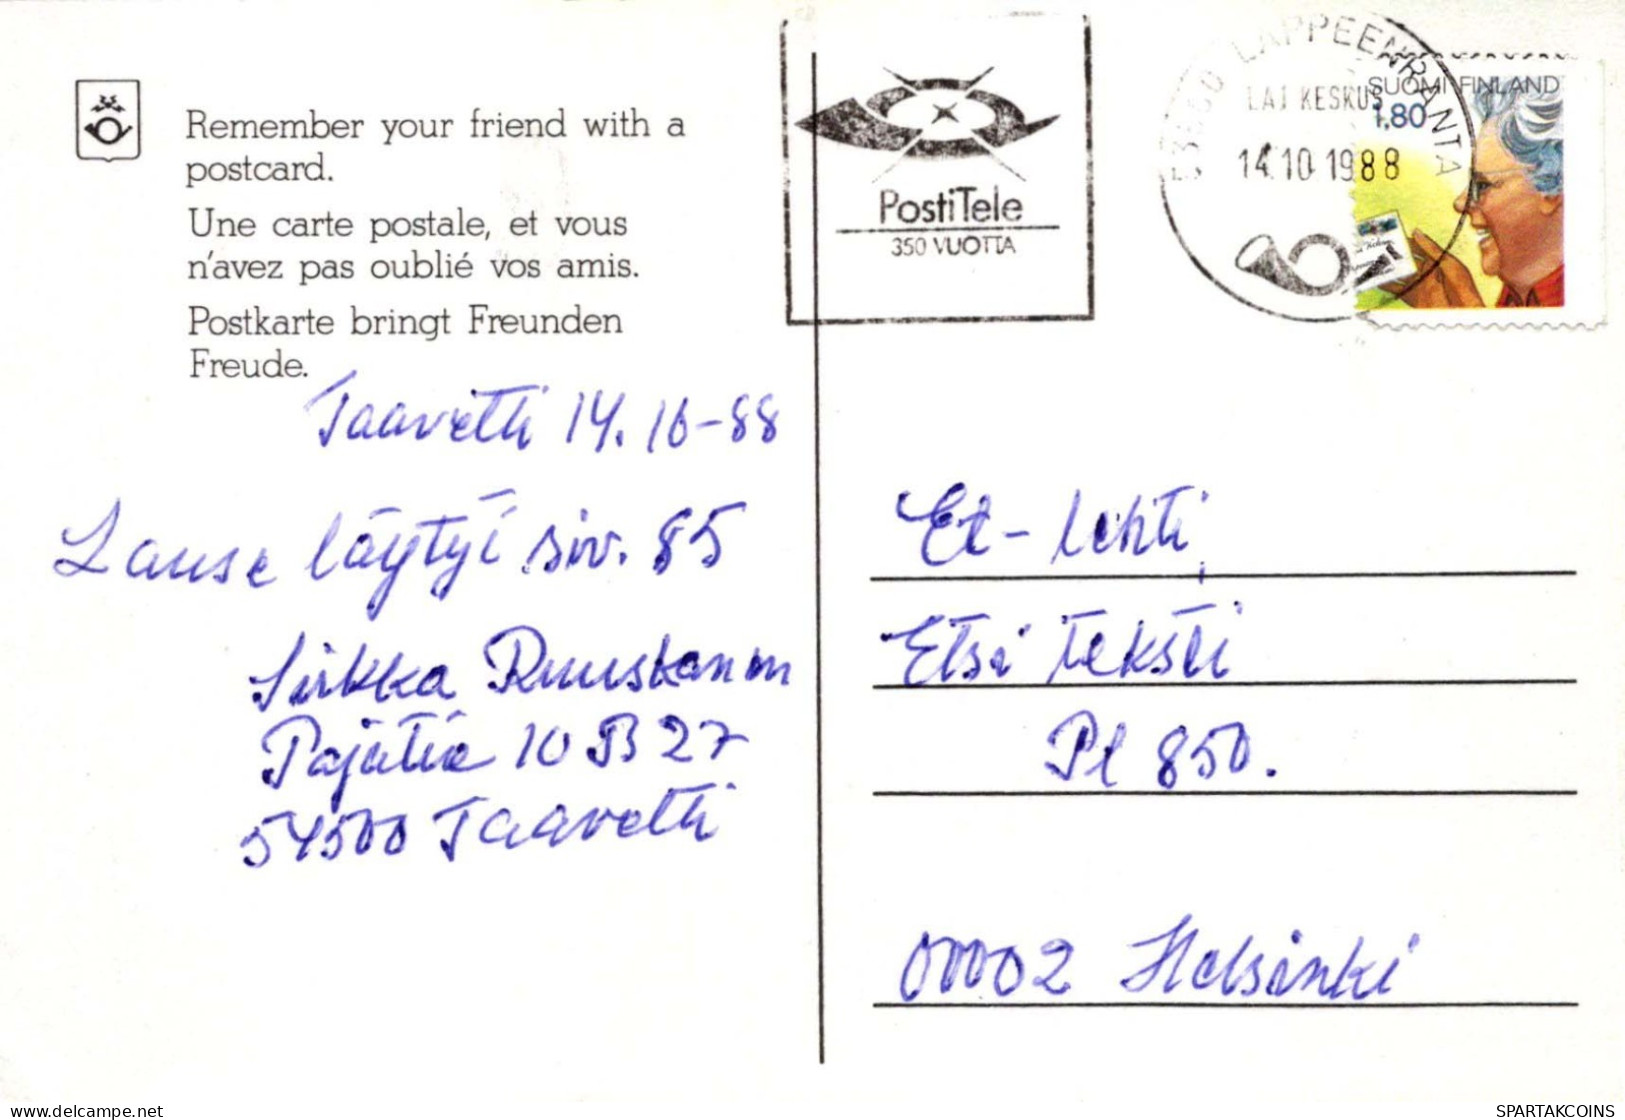 Remember your friend with a
postcard.
Une carte postale, et vous
n'avez pas oublié vos amis.
Postkarte bringt Freunden
Freude.
Taavetti 14.10-88
Lause löytyi siv. 85
Sirkka Ruuskanen
Pajatie 10 B 27
54500 Taavetti
PostiTele
350 VUOTTA
LAPPEENRANTA
LAJ KESKUS
14.10.1988
SUOMI FINLAND
1,80
Et-lehti,
Etsi teksti
Pl 850.
00002 Helsinki
delcampe.net
SPARTAKCOINS